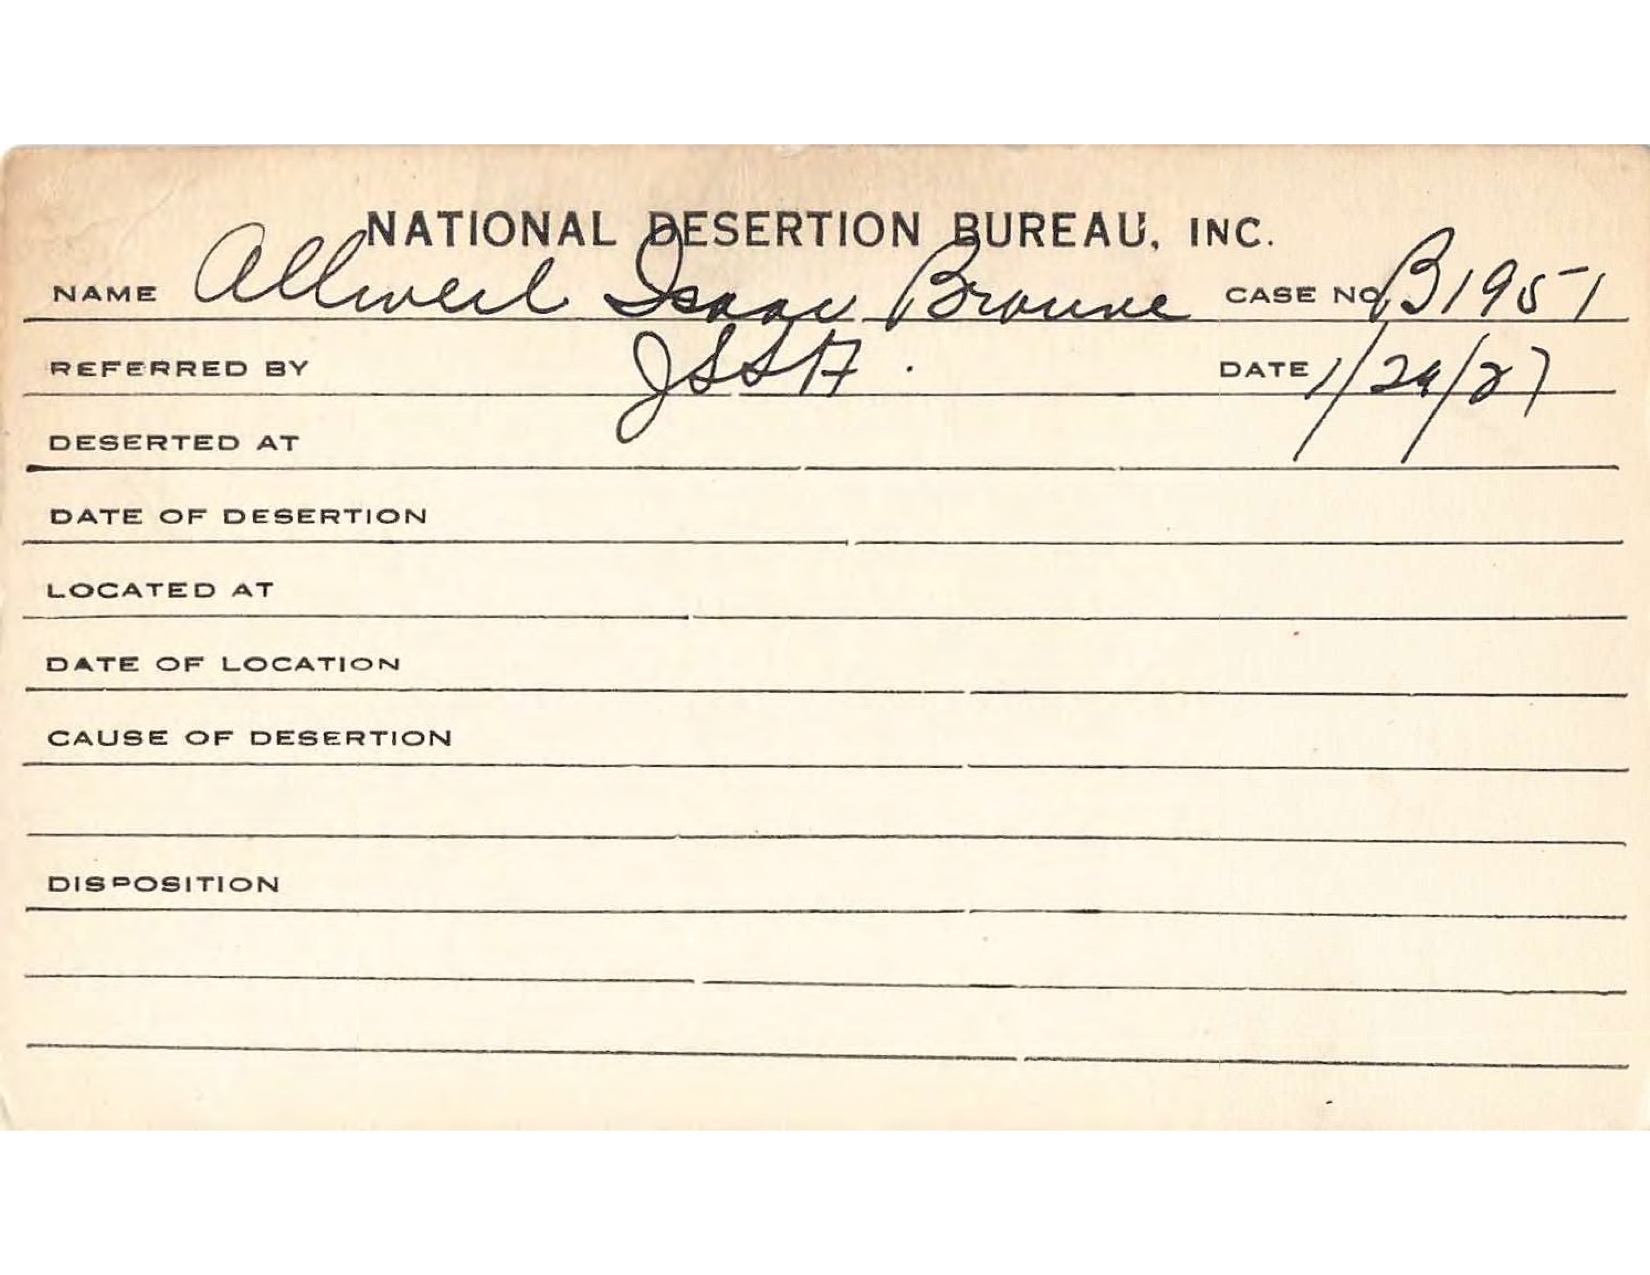 NATIONAL DESERTION BUREAU, INC.
NAME Allweil Isaac Broune CASE NO. B1951
REFERRED BY JSSA. DATE 1/24/27
DESERTED AT
DATE OF DESERTION
LOCATED AT
DATE OF LOCATION
CAUSE OF DESERTION
DISPOSITION